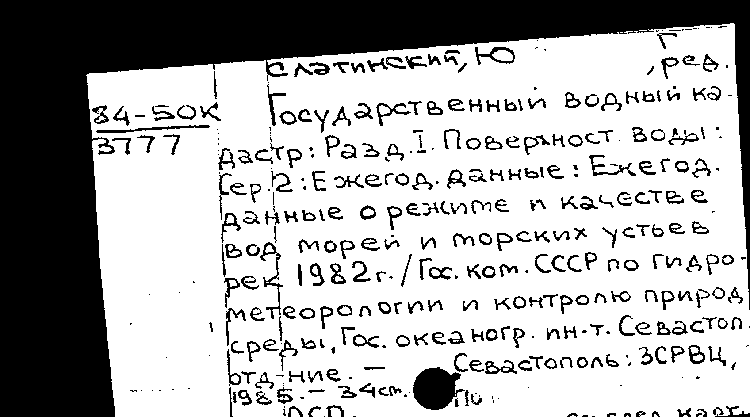 Слатинский, Ю Г
, ред.
84-50К
3777
Государственный водный ка-
дастр: Разд. I. Поверхност. воды:
Сер. 2: Ежегод. данные: Ежегод.
данные о режиме и качестве
вод морей и морских устьев
рек 1982 г. / Гос. ком. СССР по гидро-
метеорологии и контролю природ
среды, Гос. океаногр. ин-т. Севастоп.
отд-ние. — Севастополь: ЗСРВЦ,
1985. — 34 см.
ДСП.